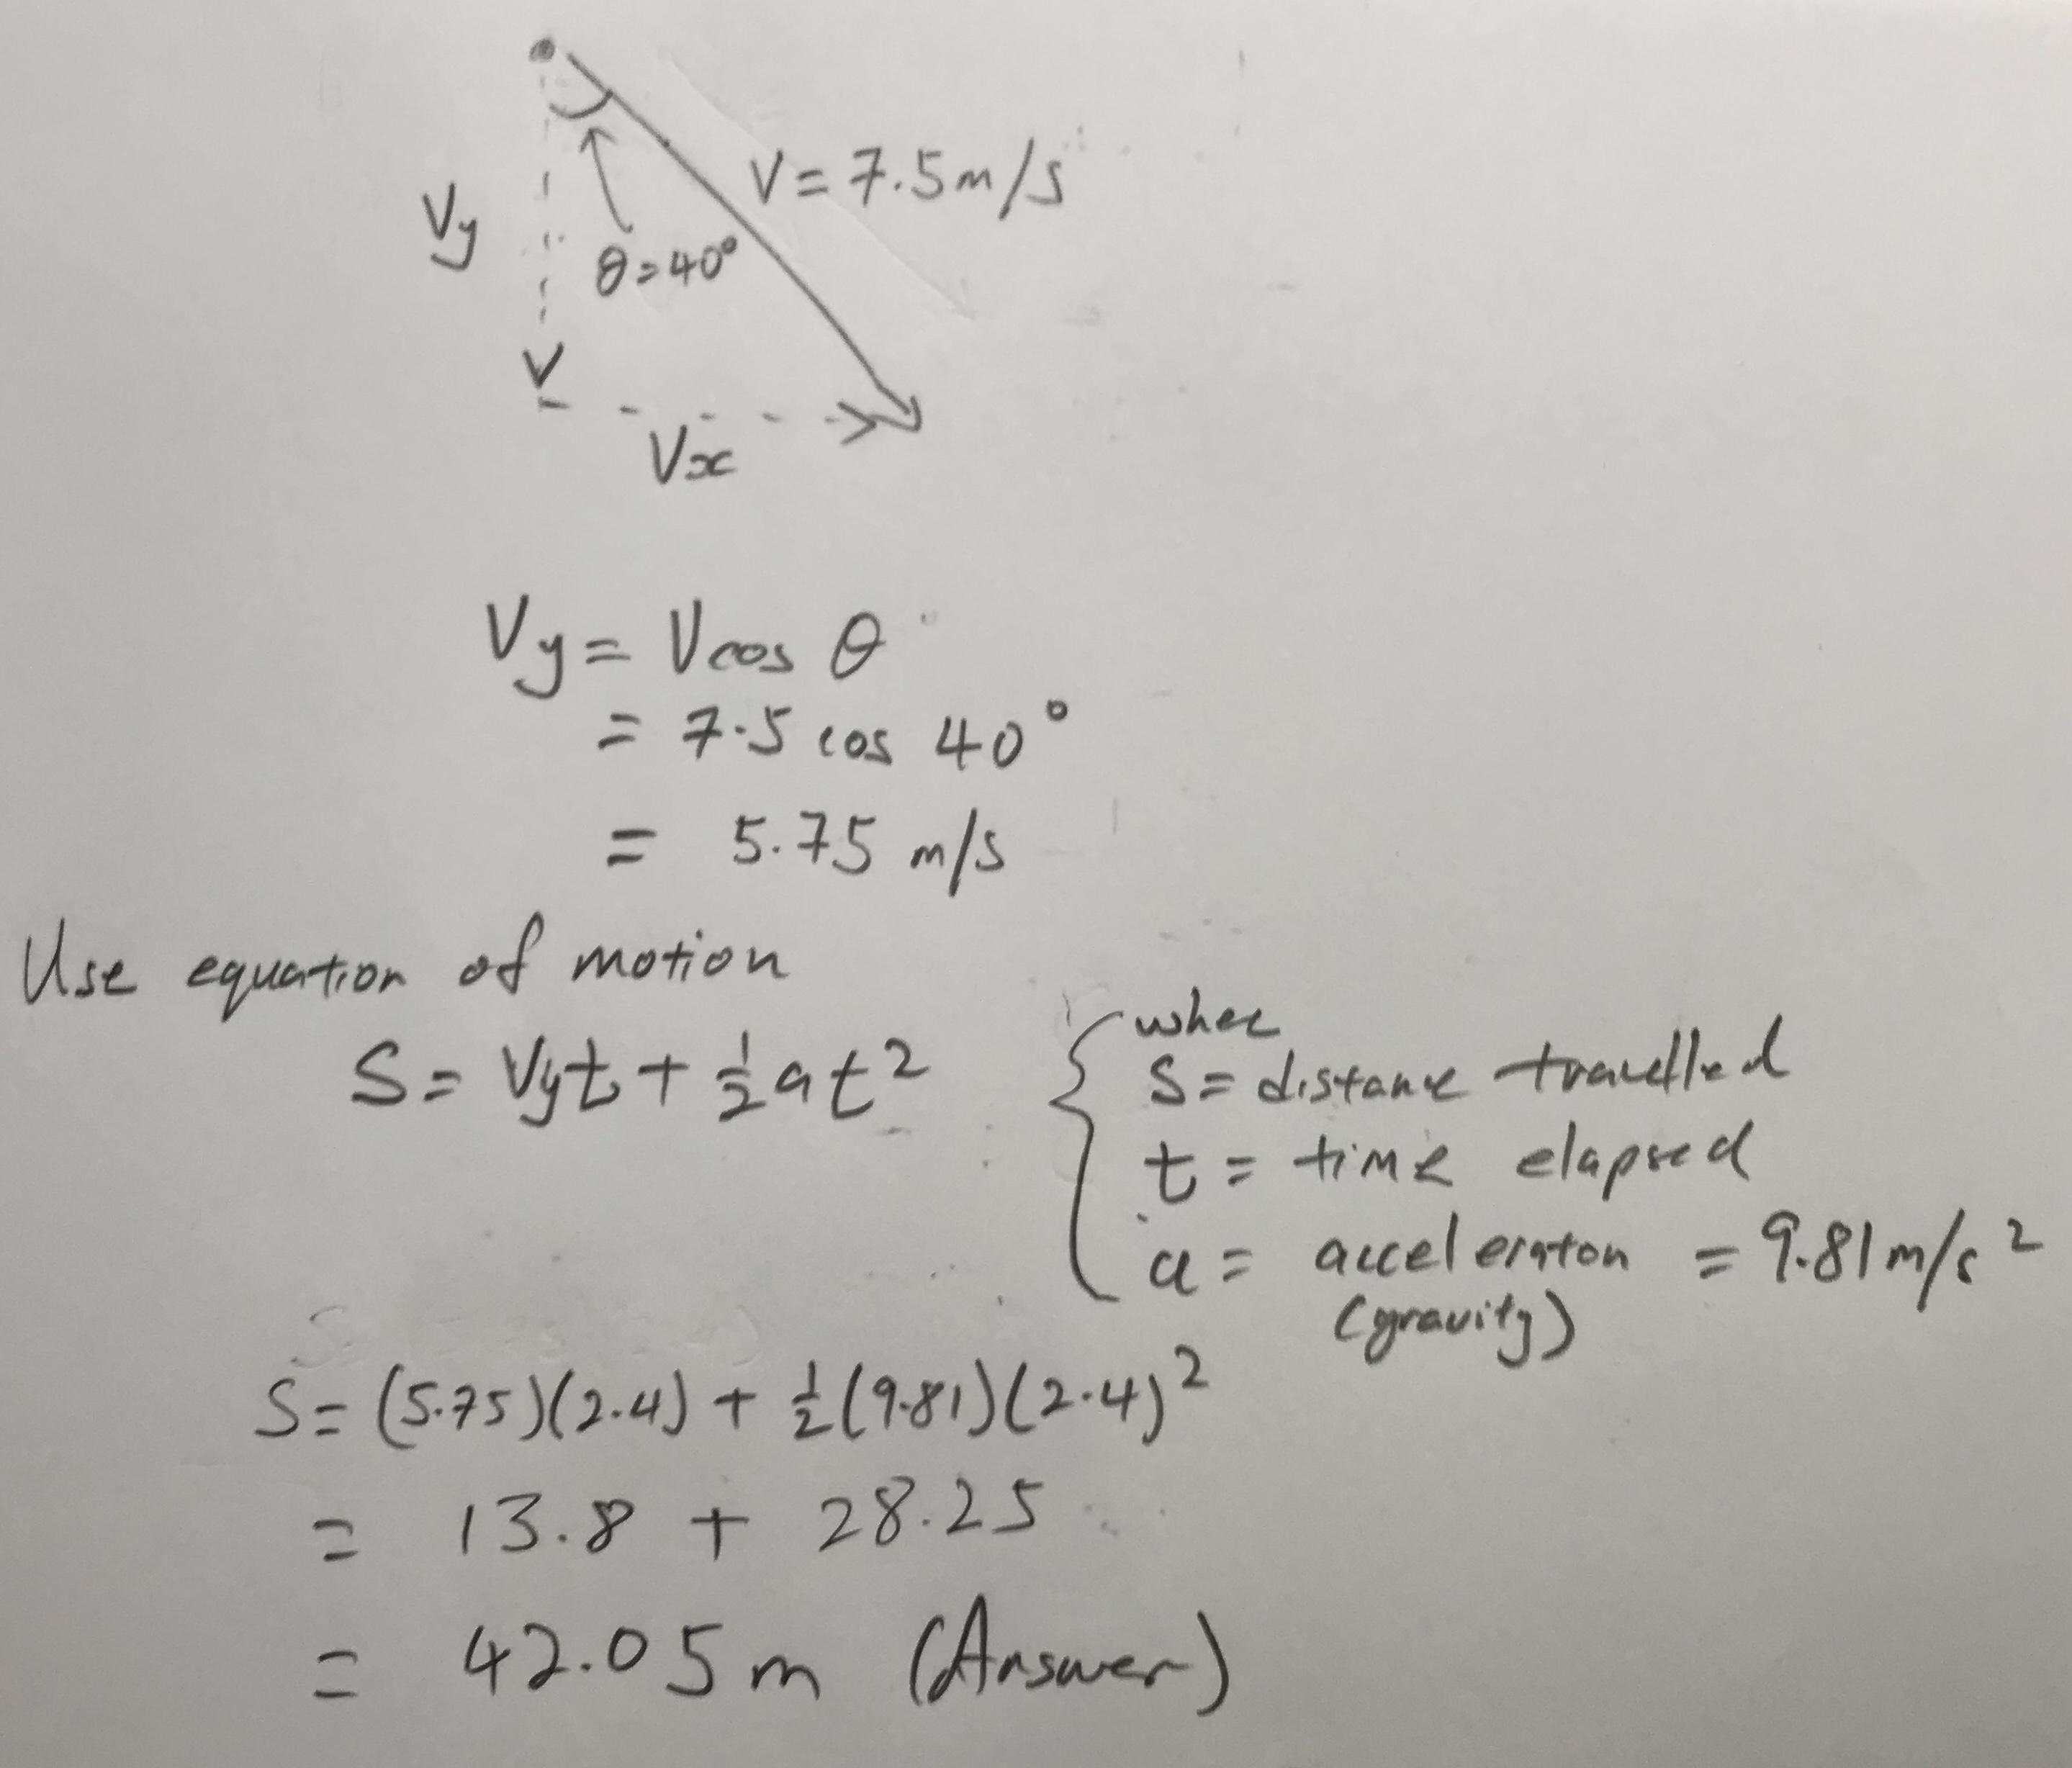 V = 7.5m/s
Vy
θ = 40°
Vx
Vy = V cos θ
= 7.5 cos 40°
= 5.75 m/s
Use equation of motion
S = Vyt + ½at²
whee
S = distance travelled
t = time elapsed
a = acceleraton = 9.81m/s²
(gravity)
S = (5.75)(2.4) + ½(9.81)(2.4)²
= 13.8 + 28.25
= 42.05 m (Answer)